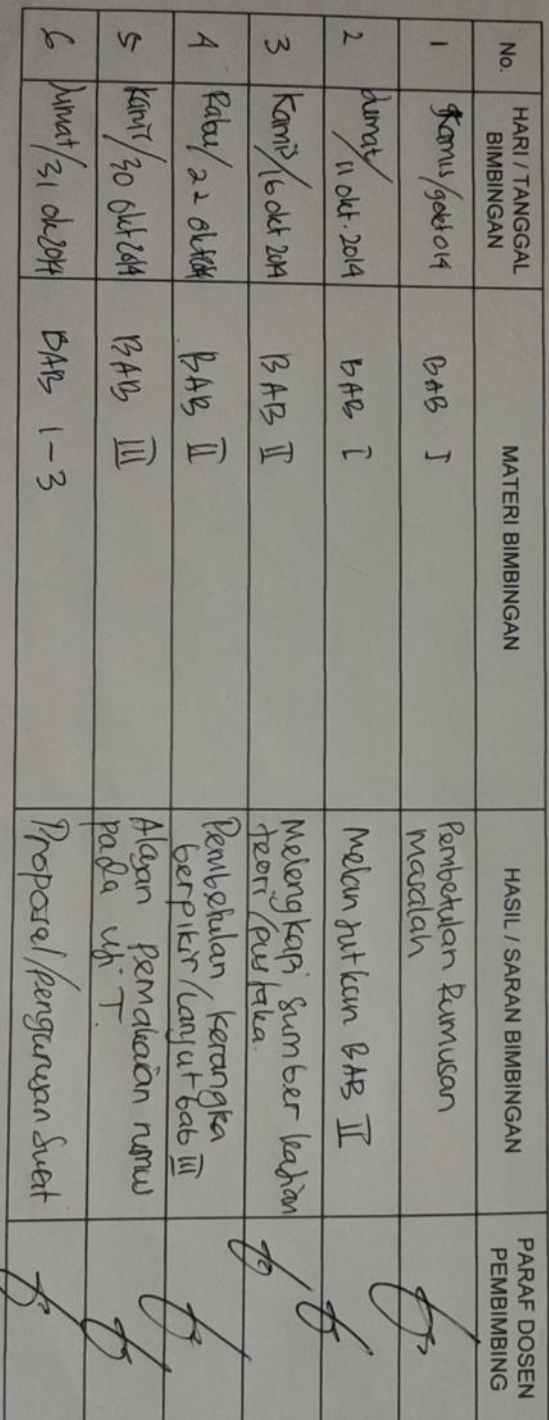 No. HARI / TANGGAL BIMBINGAN MATERI BIMBINGAN HASIL / SARAN BIMBINGAN PARAF DOSEN PEMBIMBING
1 Kamis/9okt014 BAB I Pembetulan Rumusan
Masalah
2 Jumat/11 okt.2014 BAB I Melanjutkan BAB II
3 Kamis/16 okt 2014 BAB II Melengkapi sumber kajian
teori/pustaka.
4 Rabu/22 okt BAB II Pembetulan kerangka
berpikir/lanjut bab III
5 Kamis/30 Okt 2014 BAB III Alasan Pemakaian rumus
pada uji T.
6 Jumat/31 ok 2014 BAB 1-3 Proposal/Pengurusan Surat